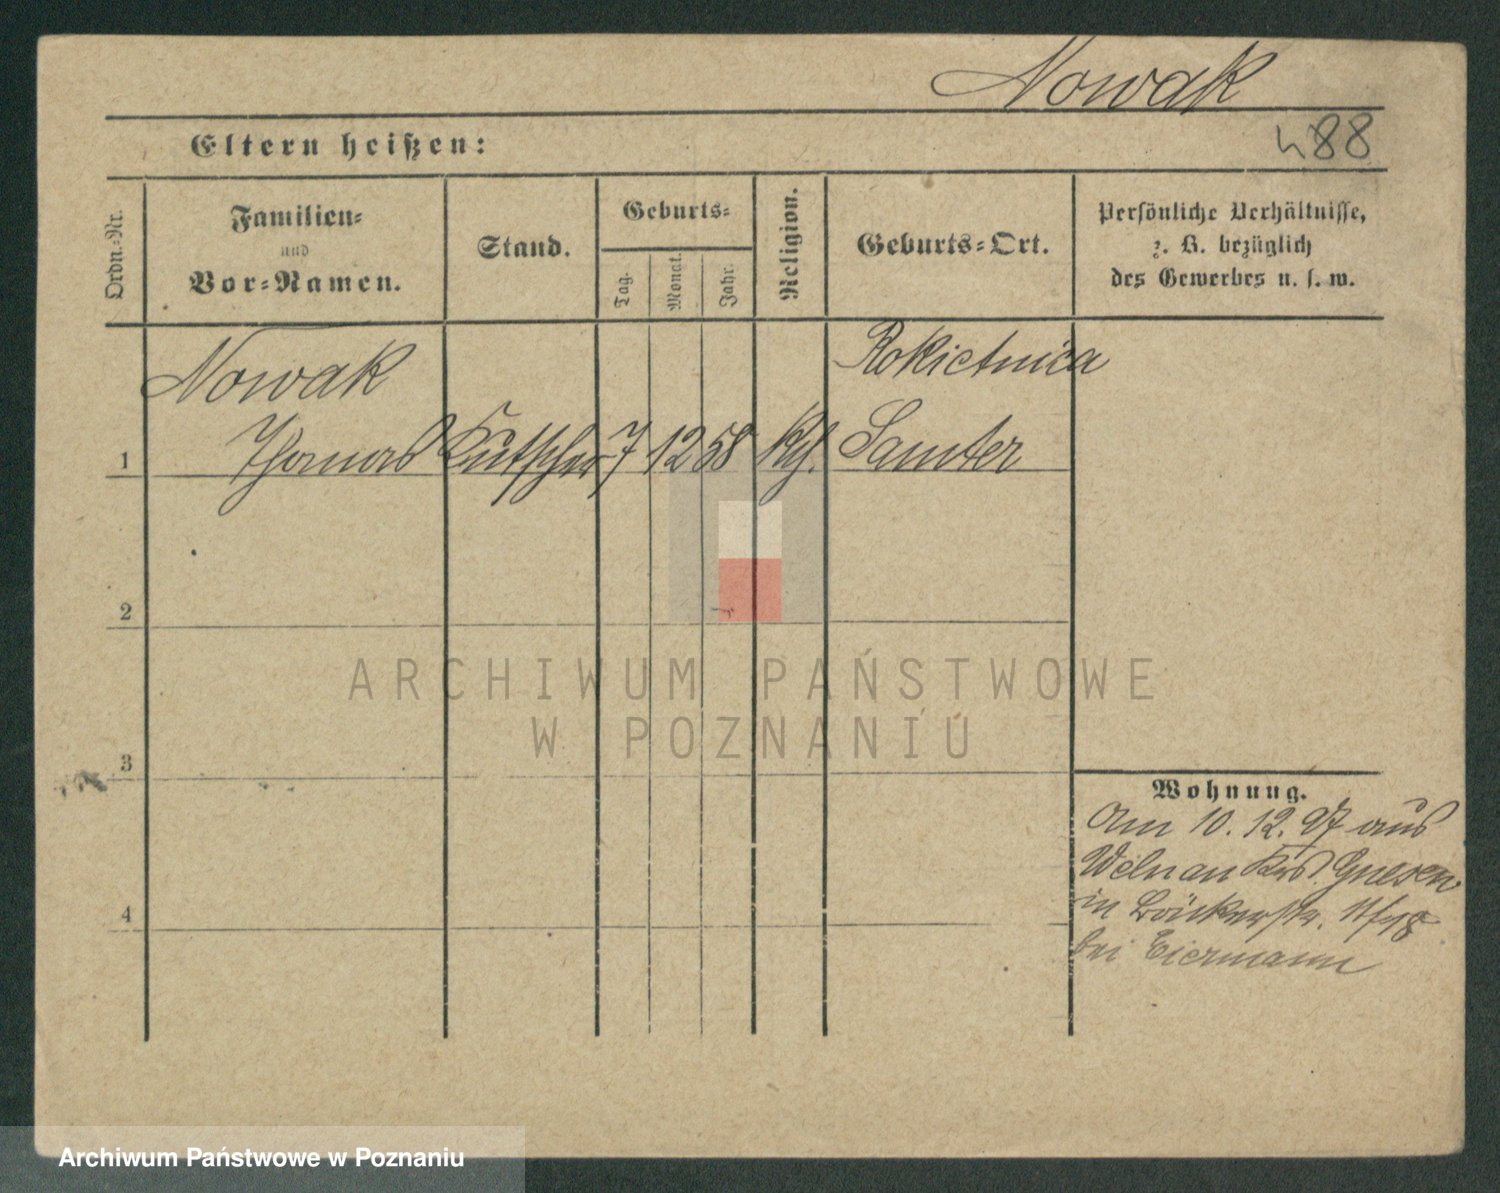 Nowak
488
Eltern heißen:
Ordn.-Nr.
Familien-
und
Vor-Namen.
Stand.
Geburts-
Tag.
Monat.
Jahr.
Religion.
Geburts-Ort.
Persönliche Verhältnisse,
z. B. bezüglich
des Gewerbes u. s. w.
Nowak
Rokietnica
1 Thomas Kutscher 7 12 58 kth. Samter
2
3
4
Wohnung.
Am 10. 12. 97 aus
Welnau Krs. Gnesen
in Bäckerstr.
bei Eiermann
ARCHIWUM PAŃSTWOWE
W POZNANIU
Archiwum Państwowe w Poznaniu